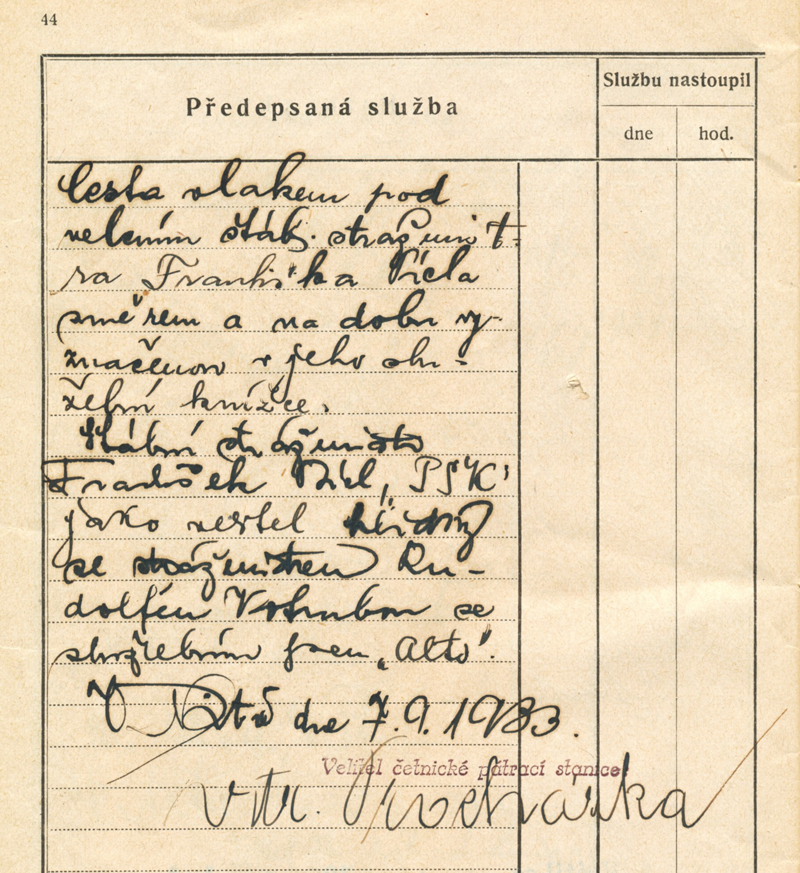 44
Předepsaná služba
Službu nastoupil
dne
hod.
Cesta vlakem pod
velením štáb. strážmist-
ra Františka Vícla
směrem a na dobu vy-
značenou v jeho slu-
žební knížce.
Štábní strážmistr
František Vícl, PSK
jako velitel hlídky
se strážmistrem Ru-
dolfem Votrubou se
služebním psem „Alto".
V dne 7.9.1933.
Velitel četnické pátrací stanice:
vrtr. Procházka